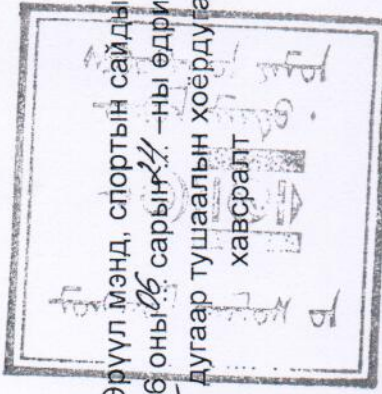 эрүүл мэнд, спортын сайды
6 оны 06 сарын 24 –ны өдри
дугаар тушаалын хоёрдуга
хавсралт